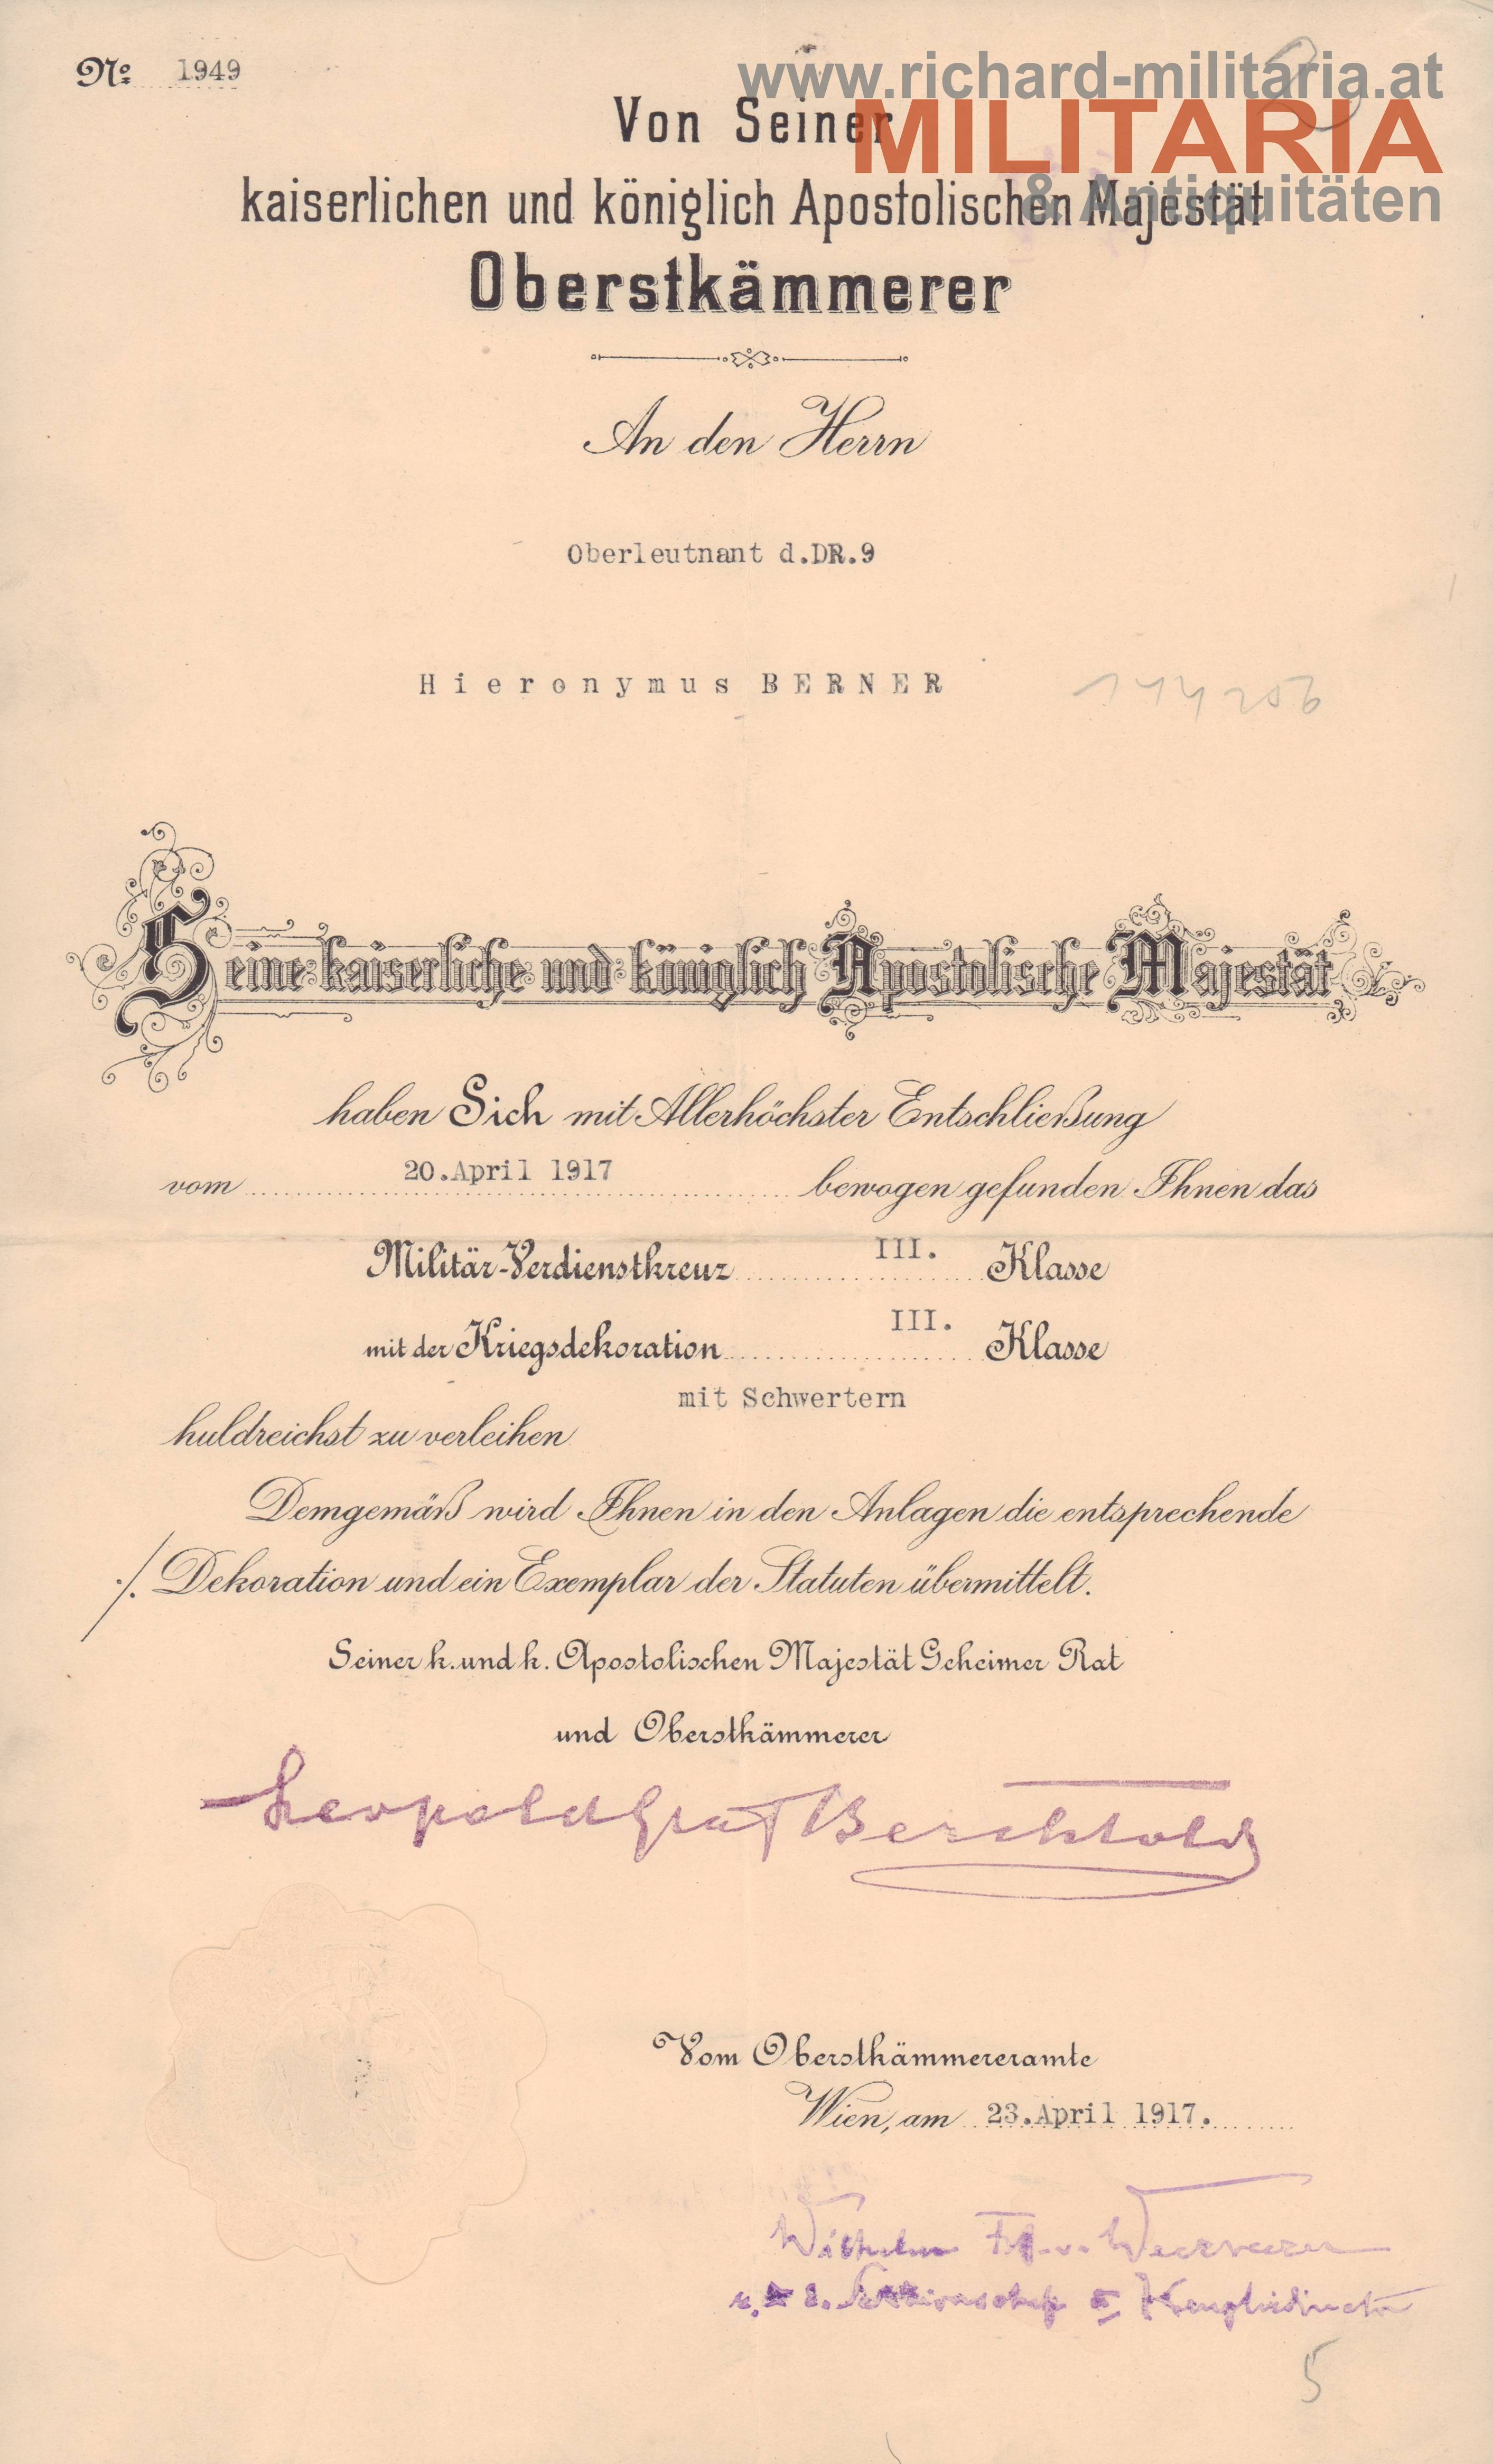 www.richard-militaria.at
MILITARIA
& Antiquitäten
No 1949
Von Seiner
kaiserlichen und königlich Apostolischen Majestät
Oberstkämmerer
An den Herrn
Oberleutnant d.DR.9
Hieronymus BERNER
144206
Seine kaiserliche und königlich Apostolische Majestät
haben Sich mit Allerhöchster Entschließung
vom 20.April 1917 bewogen gefunden Ihnen das
Militär-Verdienstkreuz III. Klasse
mit der Kriegsdekoration III. Klasse
mit Schwertern
huldreichst zu verleihen
Demgemäß wird Ihnen in den Anlagen die entsprechende
./. Dekoration und ein Exemplar der Statuten übermittelt.
Seiner k. und k. Apostolischen Majestät Geheimer Rat
und Oberstkämmerer
Leopold Graf Berchtold
Vom Oberstkämmereramte
Wien, am 23.April 1917.
Wilhelm Frh. v. Weckbecker
5